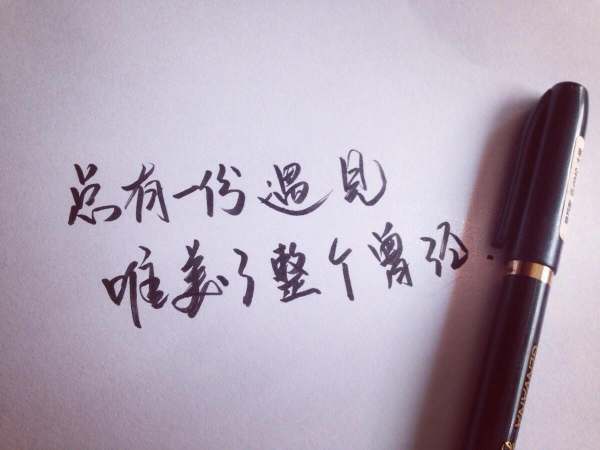 总有一份遇见
唯美了整个曾经.